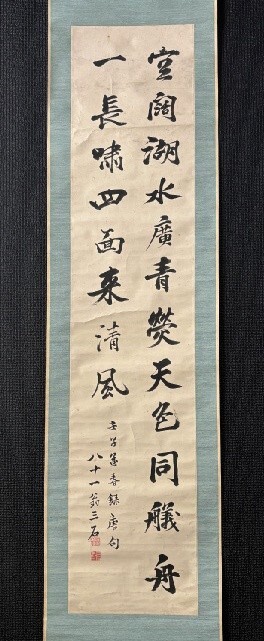 空闊湖水廣青熒天色同艤舟
一長嘯四面来清風
壬子暮春録唐句
八十一翁三石